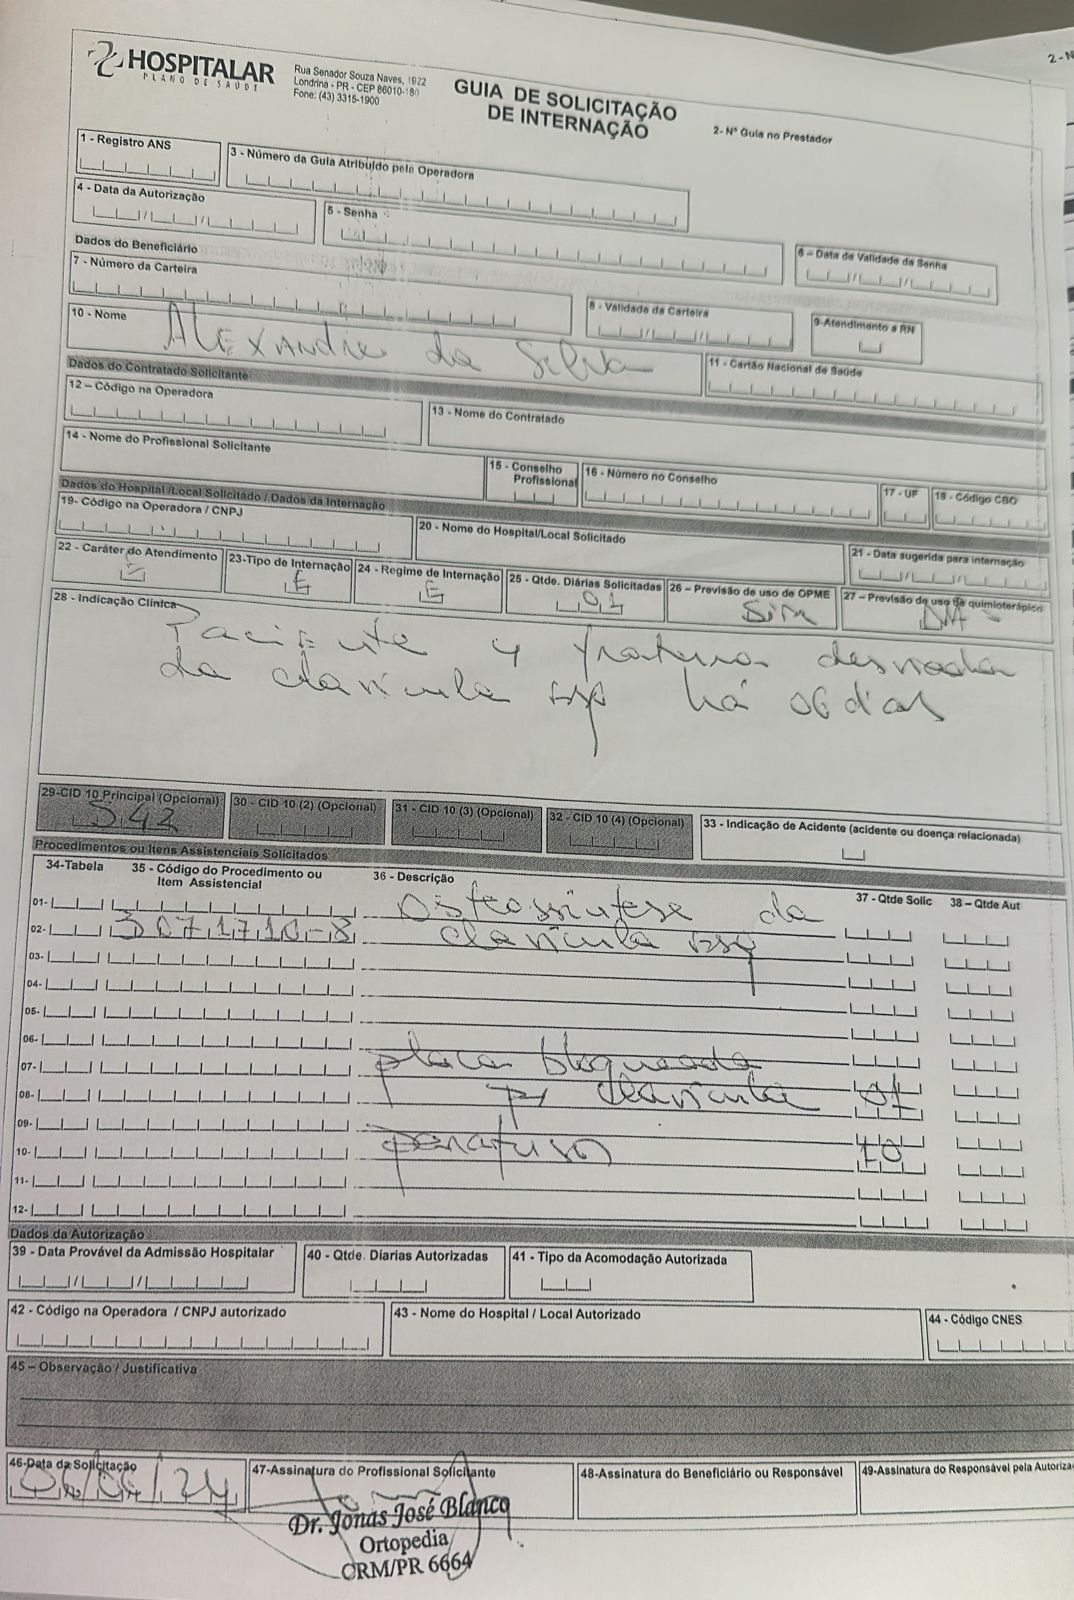 2-N
HOSPITALAR
PLANO DE SAÚDE
Rua Senador Souza Naves, 1922
Londrina - PR - CEP 86010-160
Fone: (43) 3315-1900
GUIA DE SOLICITAÇÃO
DE INTERNAÇÃO
2- Nº Guia no Prestador
1 - Registro ANS
3 - Número da Guia Atribuído pela Operadora
4 - Data da Autorização
5 - Senha
6 – Data de Validade da Senha
Dados do Beneficiário
7 - Número da Carteira
8 - Validade da Carteira
9-Atendimento a RN
10 - Nome
Alexandre da Silva
11 - Cartão Nacional de Saúde
Dados do Contratado Solicitante
12 – Código na Operadora
13 - Nome do Contratado
14 - Nome do Profissional Solicitante
15 - Conselho
Profissional
16 - Número no Conselho
17 - UF
18 - Código CBO
Dados do Hospital /Local Solicitado / Dados da Internação
19- Código na Operadora / CNPJ
20 - Nome do Hospital/Local Solicitado
21 - Data sugerida para internação
22 - Caráter do Atendimento
23-Tipo de Internação
E
24 - Regime de Internação
E
25 - Qtde. Diárias Solicitadas
01
26 – Previsão de uso de OPME
Sim
27 – Previsão de uso de quimioterápico
28 - Indicação Clínica
Paciente c/ fratura desviada
da clavícula esq há 06 dias
29-CID 10 Principal (Opcional)
S42
30 - CID 10 (2) (Opcional)
31 - CID 10 (3) (Opcional)
32 - CID 10 (4) (Opcional)
33 - Indicação de Acidente (acidente ou doença relacionada)
Procedimentos ou Itens Assistenciais Solicitados
34-Tabela
35 - Código do Procedimento ou
Item Assistencial
36 - Descrição
37 - Qtde Solic
38 – Qtde Aut
01- Osteossíntese da
02- 3071710-8 clavícula esq
03-
04-
05-
06-
07- placa bloqueada
08- p/ clavícula 01
09-
10- parafuso 10
11-
12-
Dados da Autorização
39 - Data Provável da Admissão Hospitalar
40 - Qtde. Diarias Autorizadas
41 - Tipo da Acomodação Autorizada
42 - Código na Operadora / CNPJ autorizado
43 - Nome do Hospital / Local Autorizado
44 - Código CNES
45 – Observação / Justificativa
46-Data da Solicitação
06/06/24
47-Assinatura do Profissional Solicitante
48-Assinatura do Beneficiário ou Responsável
49-Assinatura do Responsável pela Autoriza
Dr. Jonas José Blanco
Ortopedia
CRM/PR 6664